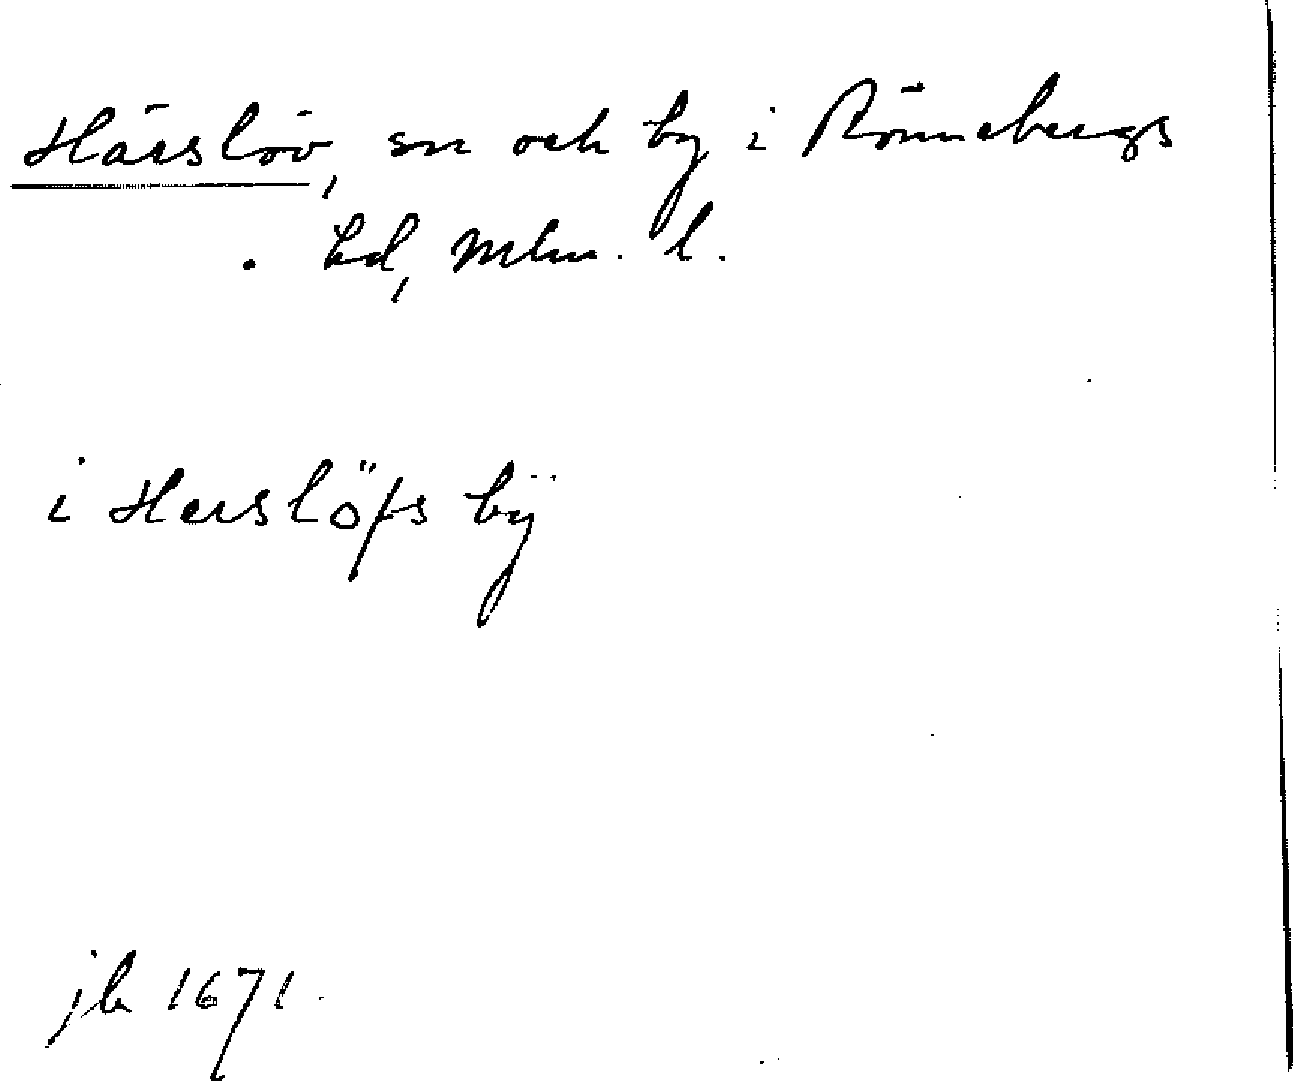 Härslöv, sn och by i Rönnebergs
hd, Mlm. l.
i Herslöfs bÿ
jb 1671.